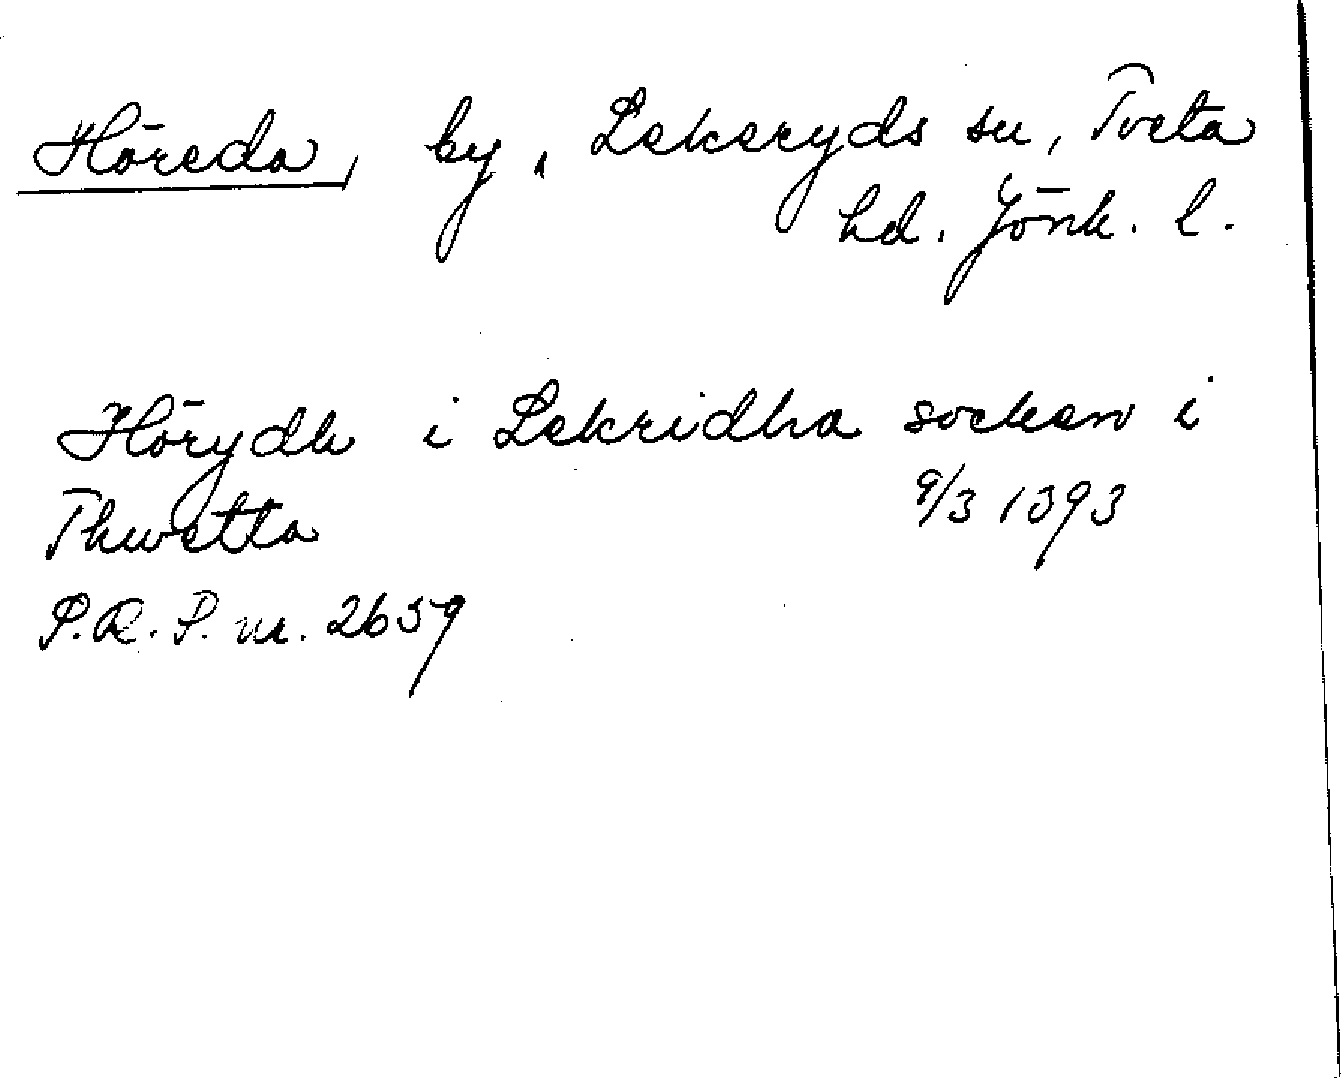 Höreda, by, Lekeryds sn, Tveta
hd. Jönk. l.
Hörydh i Lekridha socken i
Thwetta 9/3 1393
P.R.P. nr. 2659